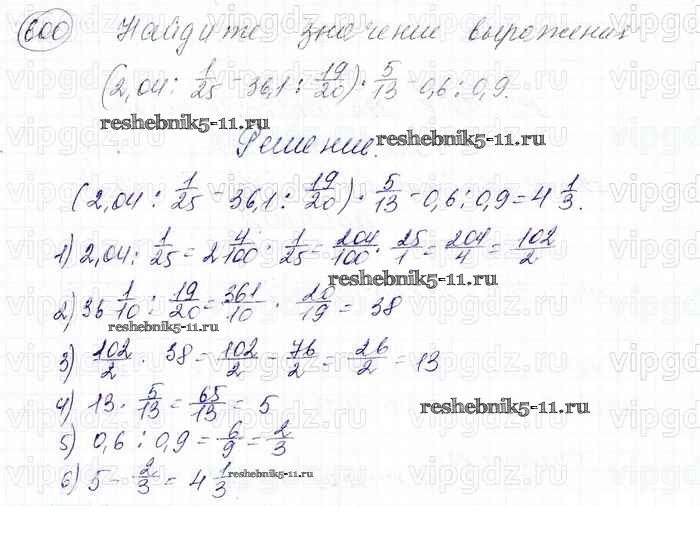 600 Найдите значение выражения
(2,04 : 1/25 - 36,1 : 19/20) · 5/13 - 0,6 : 0,9.
reshebnik5-11.ru
reshebnik5-11.ru
Решение.
(2,04 : 1/25 - 36,1 : 19/20) · 5/13 - 0,6 : 0,9 = 4 1/3.
1) 2,04 : 1/25 = 2 4/100 : 1/25 = 204/100 · 25/1 = 204/4 = 102/2
reshebnik5-11.ru
2) 36 1/10 : 19/20 = 361/10 · 20/19 = 38
reshebnik5-11.ru
3) 102/2 - 38 = 102/2 - 76/2 = 26/2 = 13
4) 13 · 5/13 = 65/13 = 5
reshebnik5-11.ru
5) 0,6 : 0,9 = 6/9 = 2/3
6) 5 - 2/3 = 4 1/3
reshebnik5-11.ru
vipgdz.ru